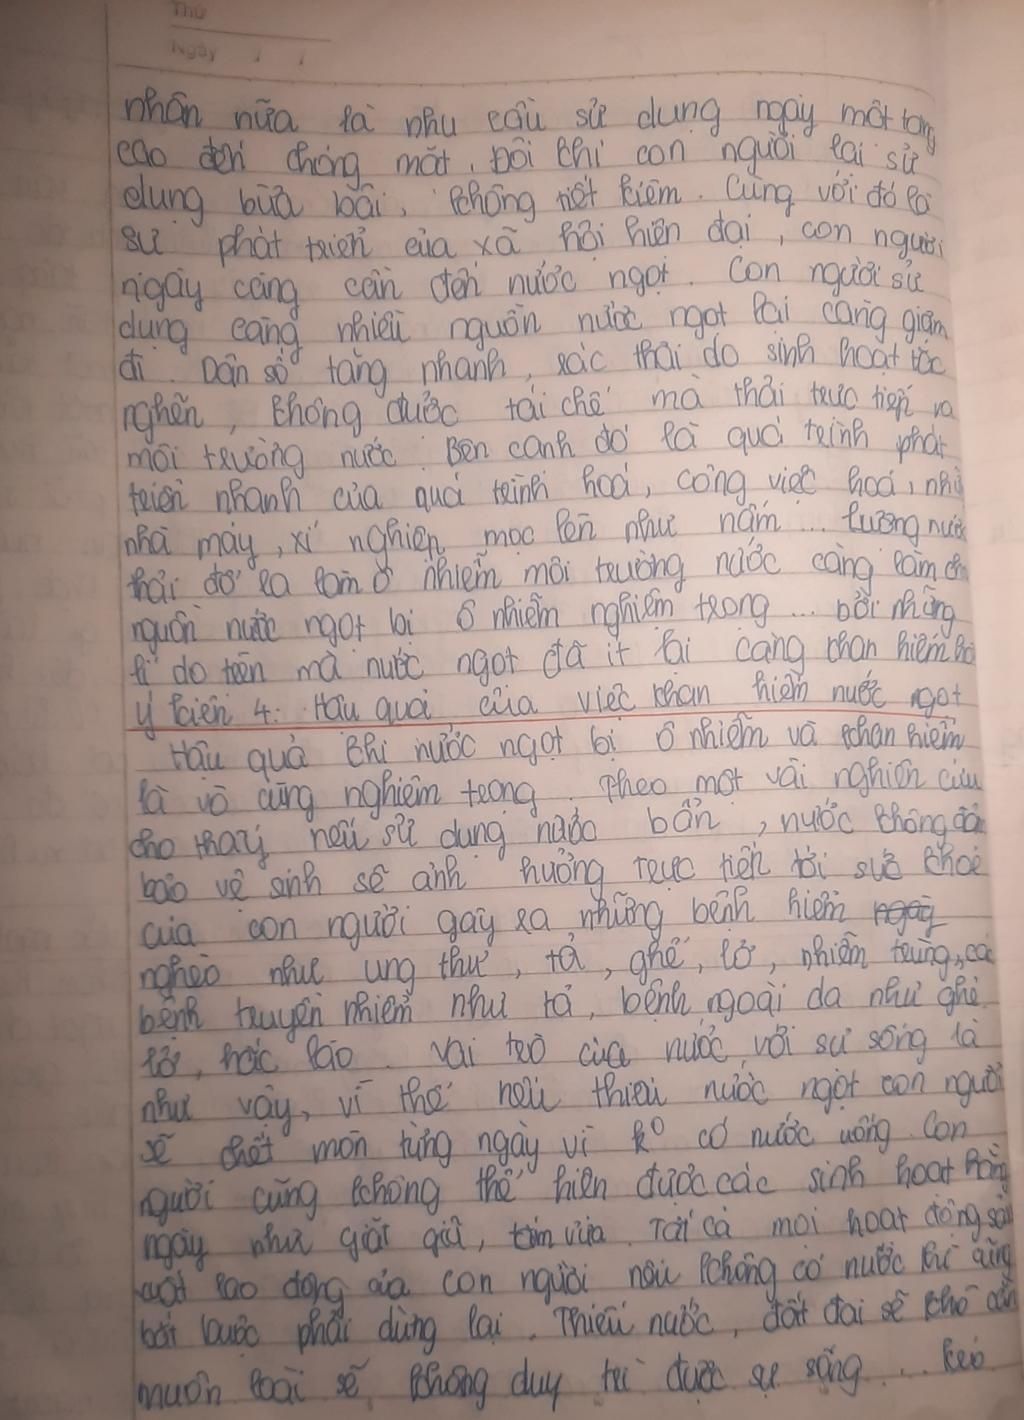 Thứ
Ngày / /
nhân nữa là nhu cầu sử dụng ngày một tăng
cao đến chóng mặt. Đôi khi con người lại sử
dụng bừa bãi, không tiết kiệm. Cùng với đó là
sự phát triển của xã hội hiện đại, con người
ngày càng cần đến nước ngọt. Con người sử
dụng càng nhiều nguồn nước ngọt lại càng giảm
đi. Dân số tăng nhanh, rác thải do sinh hoạt tắc
nghẽn, không được tái chế mà thải trực tiếp ra
môi trường nước. Bên cạnh đó là quá trình phát
triển nhanh của quá trình hoá, công việc hoá, nhà
nhà máy, xí nghiệp mọc lên như nấm ... lượng nước
thải đó ra làm ô nhiễm môi trường nước càng làm cho
nguồn nước ngọt bị ô nhiễm nghiêm trọng ... bởi những
lí do trên mà nước ngọt đã ít lại càng khan hiếm
ý kiến 4: Hậu quả của việc khan hiếm nước ngọt
Hậu quả khi nước ngọt bị ô nhiễm và khan hiếm
là vô cùng nghiêm trọng. Theo một vài nghiên cứu
cho thấy nếu sử dụng nước bẩn, nước không đảm
bảo vệ sinh sẽ ảnh hưởng trực tiếp tới sức khoẻ
của con người gây ra những bệnh hiểm ngày
nghèo như ung thư, tả, ghẻ, lở, nhiễm trùng, các
bệnh truyền nhiễm như tả, bệnh ngoài da như ghẻ
lở, hắc lào. Vai trò của nước với sự sống là
như vậy, vì thế nếu thiếu nước ngọt con người
sẽ chết mòn từng ngày vì k⁰ có nước uống. Con
người cũng không thể hiện được các sinh hoạt hằng
ngày như giặt giũ, tắm rửa. Tất cả mọi hoạt động sản
xuất lao động của con người nếu không có nước thì cũng
bắt buộc phải dừng lại. Thiếu nước, đất đai sẽ khô cằn
muôn loài sẽ không duy trì được sự sống ... kéo